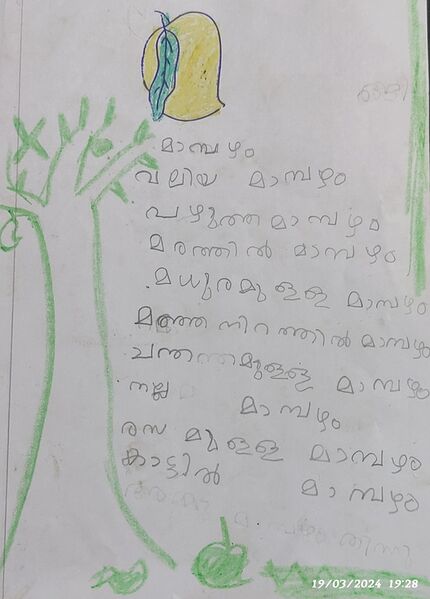 മാമ്പഴം
വലിയ മാമ്പഴം
പഴുത്ത മാമ്പഴം
മരത്തിൽ മാമ്പഴം
മധുരമുളള മാമ്പഴം
മഞ്ഞ നിറത്തിൽ മാമ്പഴം
ചന്തമുളള മാമ്പഴം
നല്ല മാമ്പഴം
രസ മുളള മാമ്പഴം
കാട്ടിൽ മാമ്പഴം
മാമ്പഴം തിന്നു
19/03/2024 19:28